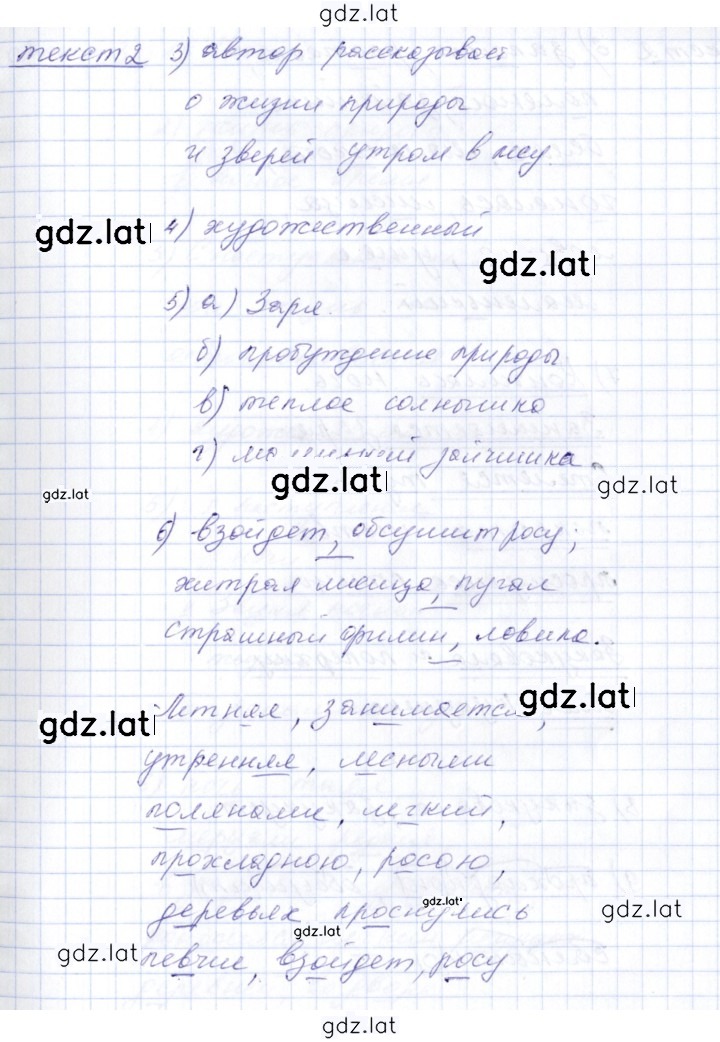 gdz.lat
текст 2 3) автор рассказывает
о жизни природы
и зверей утром в лесу.
gdz.lat
4) художественный
gdz.lat
5) а) Заря.
б) пробуждение природы
в) теплое солнышко
г) зайчишка.
gdz.lat
gdz.lat
gdz.lat
6) взойдет, обсушит росу;
хитрая лисица, пугал
страшный филин, ловила.
Летняя, занимается,
gdz.lat
gdz.lat
утренняя, лесными
полянами, легкий,
прохладною, росою,
деревьях проснулись
gdz.lat
gdz.lat
gdz.lat
певчие, взойдет, росу
gdz.lat
gdz.lat